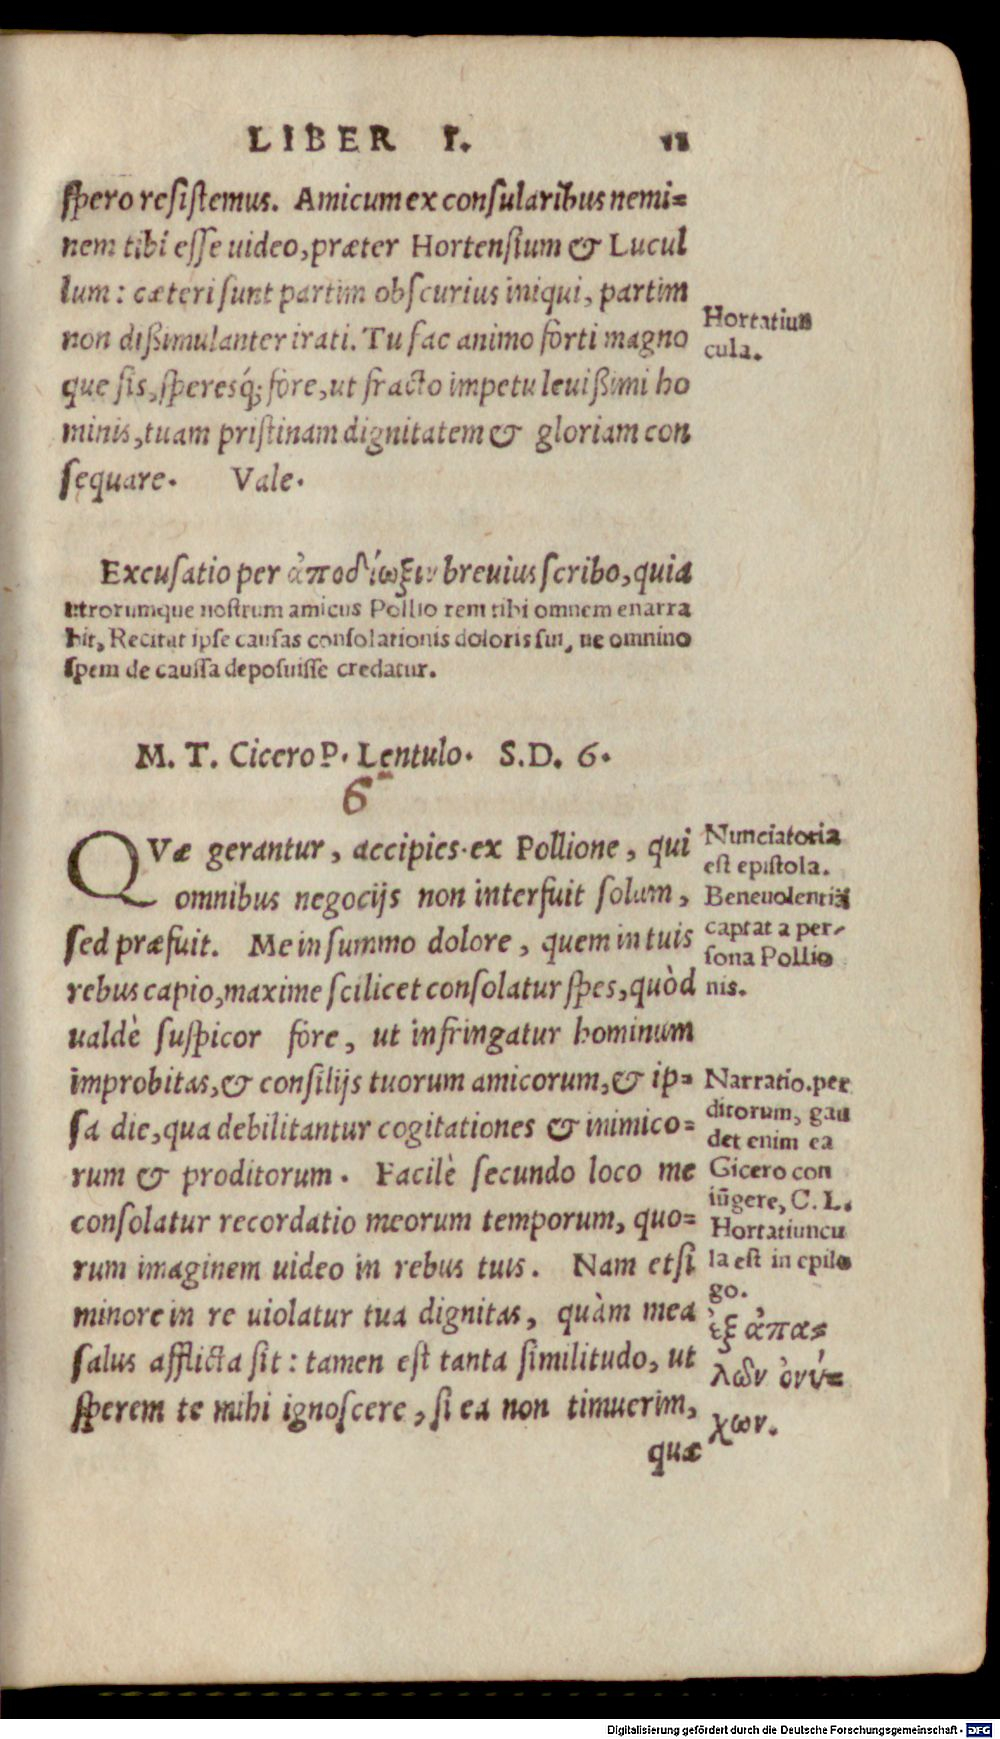 LIBER I. 11
spero resistemus. Amicum ex consularibus nemi=
nem tibi esse uideo, præter Hortensium & Lucul
lum: cæteri sunt partim obscurius iniqui, partim
non dißimulanter irati. Tu fac animo forti magno
que sis, speresq́; fore, ut fracto impetu leuißimi ho
minis, tuam pristinam dignitatem & gloriam con
sequare. Vale.
Hortatiun
cula.
Excusatio per ἀποδίωξιν breuius scribo, quia
utrorumque nostrum amicus Pollio rem tibi omnem enarra
bit, Recitat ipse causas consolationis doloris sui, ne omnino
spem de caussa deposuisse credatur.
M. T. Cicero P. Lentulo. S.D. 6.
6
QVæ gerantur, accipies ex Pollione, qui
omnibus negocijs non interfuit solum,
sed præfuit. Me in summo dolore, quem in tuis
rebus capio, maxime scilicet consolatur spes, quòd
ualdè suspicor fore, ut infringatur hominum
improbitas, & consilijs tuorum amicorum, & ip=
sa die, qua debilitantur cogitationes & inimico=
rum & proditorum. Facilè secundo loco me
consolatur recordatio meorum temporum, quo=
rum imaginem uideo in rebus tuis. Nam etsi
minore in re uiolatur tua dignitas, quàm mea
salus afflicta sit: tamen est tanta similitudo, ut
sperem te mihi ignoscere, si ea non timuerim,
quæ
Nunciatoria
est epistola.
Beneuolentiā
captat a per-
sona Pollio
nis.
Narratio. per
ditorum, gau
det enim ea
Gicero con
iūgere, C. L.
Hortatiuncu
la est in epilo
go.
ἐξ ἀπα=
λῶν ὀνύ=
χων.
Digitalisierung gefördert durch die Deutsche Forschungsgemeinschaft - DFG